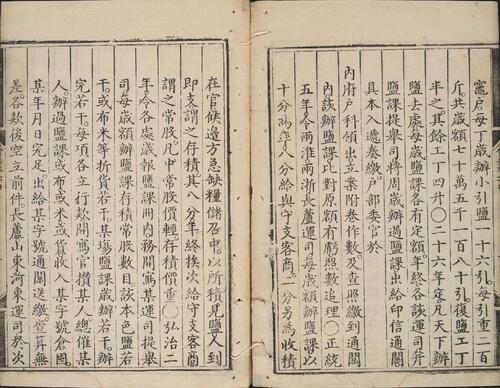 竈户每丁歲辦小引鹽一十六引每引重二百
斤共歲額七十萬五千一百八十引復鹽工丁
半之其餘工丁四升〇二十六年定凡天下辦
鹽去處每歲鹽課各有定額年終各該運司并
鹽課提舉司將周歲辦過鹽課出給印信通關
具本入遞奏繳户部委官於
內府户科領出立案附卷作數及查照繳到通關
內該辦鹽課比對原額有虧照數追理〇正統
五年令兩淮兩浙長蘆運司每歲額辦鹽課以
十分為率八分給與守支客商二分另為收積
在官候邊方急缺糧儲召中以所積見鹽人到
即支謂之存積其八分年終挨次給守支客商
謂之常股凡中常股價輕存積價重〇弘治二
年令各處歲報鹽課冊內務開寫某運司提舉
司每歲額辦鹽課存積常股數目該本色鹽若
干或布米等折貨若干某場鹽課歲辦若干辦
完若干每項各立行欵開寫官攢某人總催某
人辦過鹽課或布或米或貨收入某字號倉囤
某年月日完足出給某字號通關送繳查算無
差各欵後空立前件長蘆山東河東運司於次